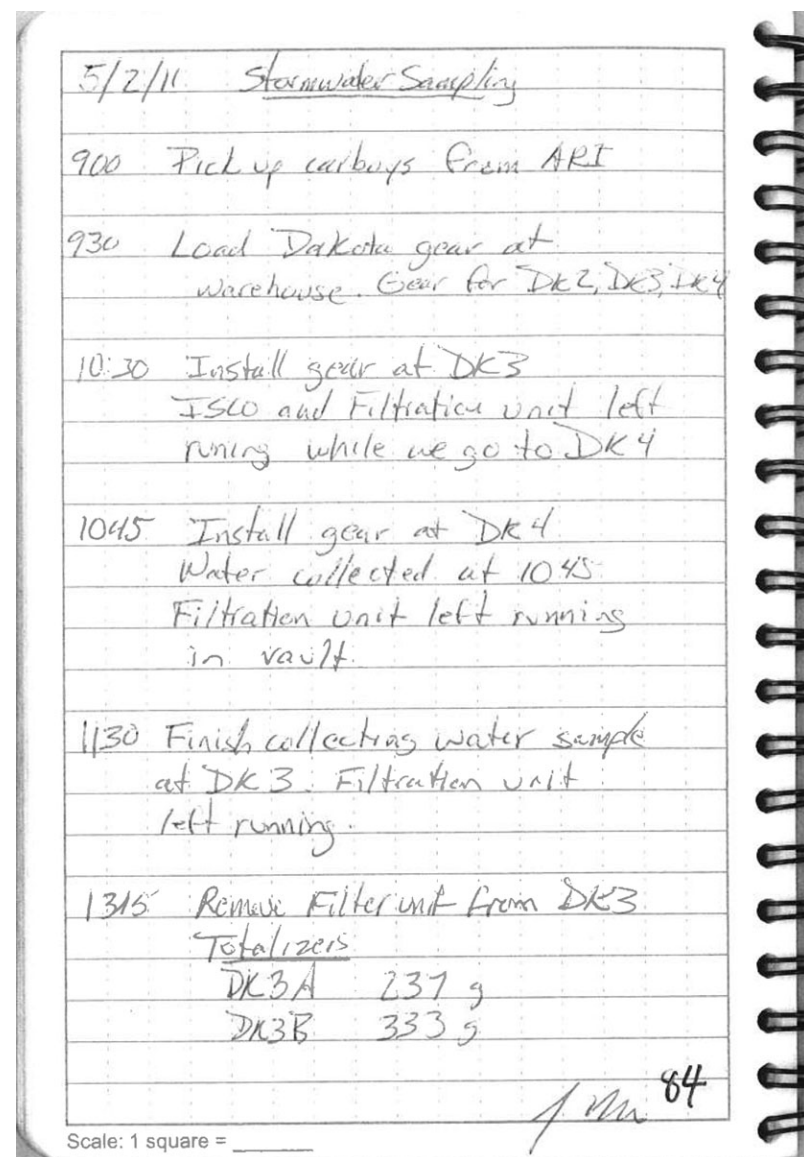 5/2/11 Stormwater Sampling
900 Pick up carboys from ARI
930 Load Dakota gear at
warehouse. Gear for DK2, DK3, DK4
10:30 Install gear at DK3
ISCO and Filtration unit left
runing while we go to DK4
1045 Install gear at DK4
Water collected at 1045
Filtration unit left running
in vault.
1130 Finish collecting water sample
at DK3. Filtration unit
left running.
1315 Remove Filter unit from DK3
Totalizers
DK3A 237 g
DK3B 333 g
84
Scale: 1 square =